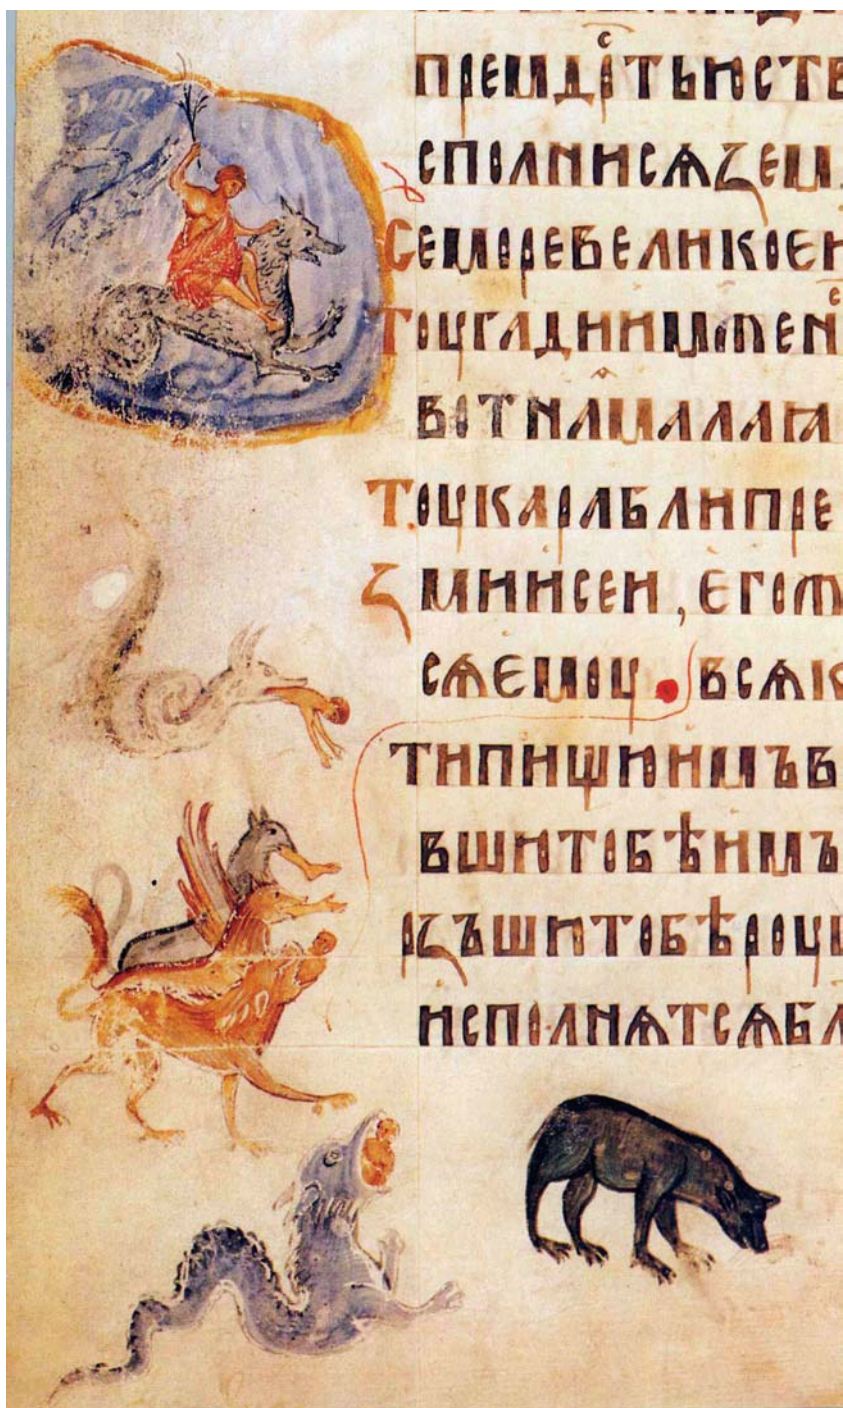 премдрⷭтьюств
сполнисѧꙁем
Семоревеликоеи
Тоугадиимженⷭ
вотнамалаꙗ
Тоукараблипре
Ꙁмиисеи,егож
сѧемоу.всѧк
типищюимъв
вшютобѣимъ
рꙁъшютобѣроу
исполнѧтсѧбл